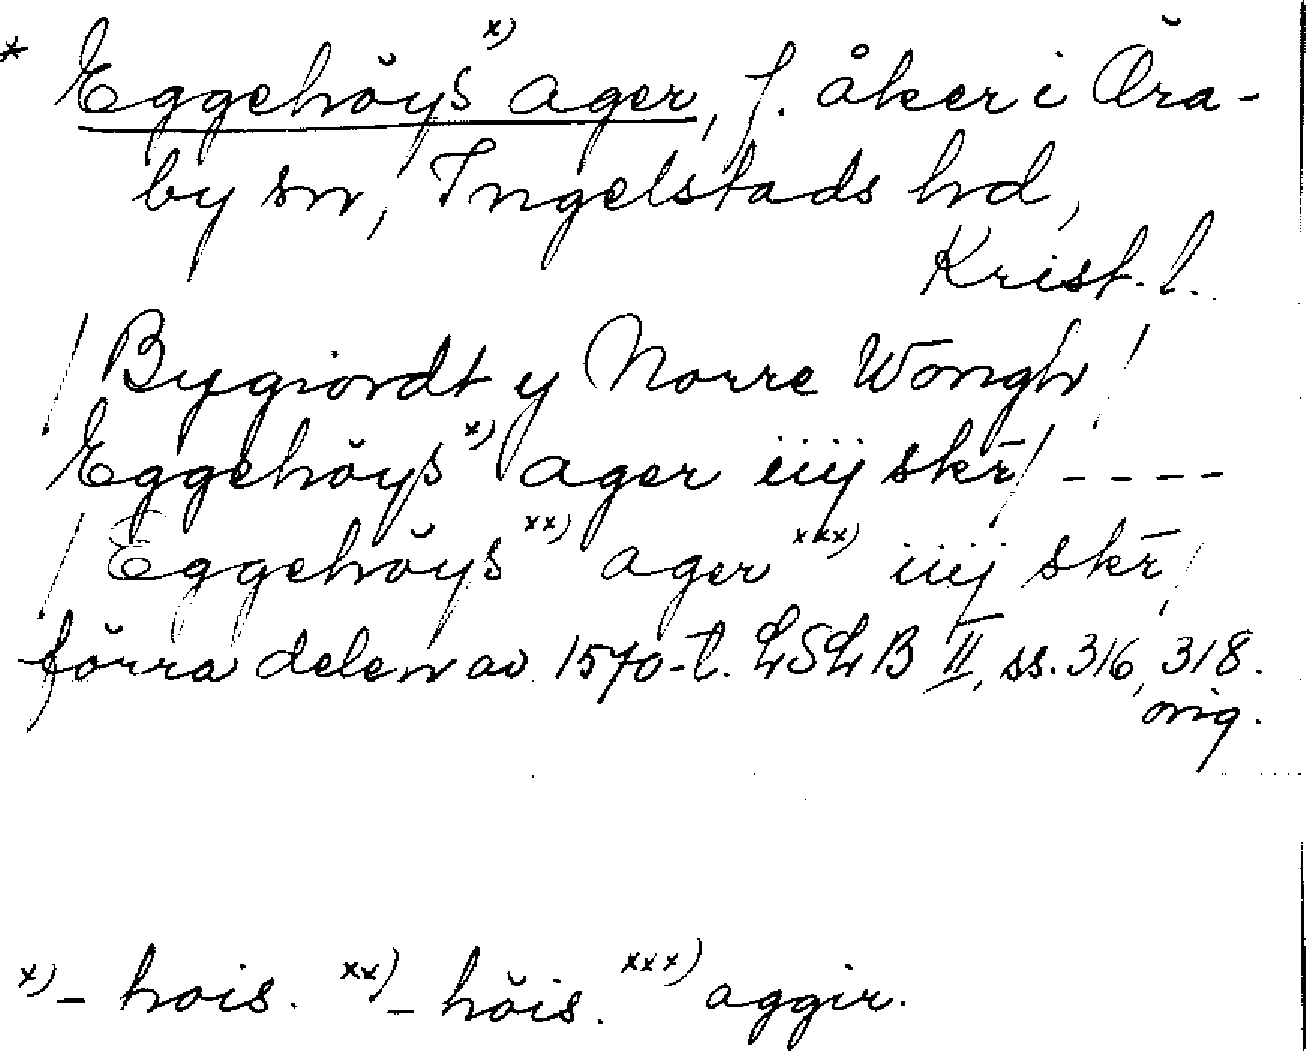 * Eggehöys x) ager, f. åker i Öra-
by sn, Ingelstads hd,
Krist. l.
/ Bygiordt y Norre Wongh /
Eggehöys x) ager iiij skr̄ / - - - -
/ Eggehöys xx) ager xxx) iiij skr̄ /
förra delen av 1570-t. LSLB II, ss. 316, 318.
orig.
x) - hois. xx) - höis. xxx) aggir.